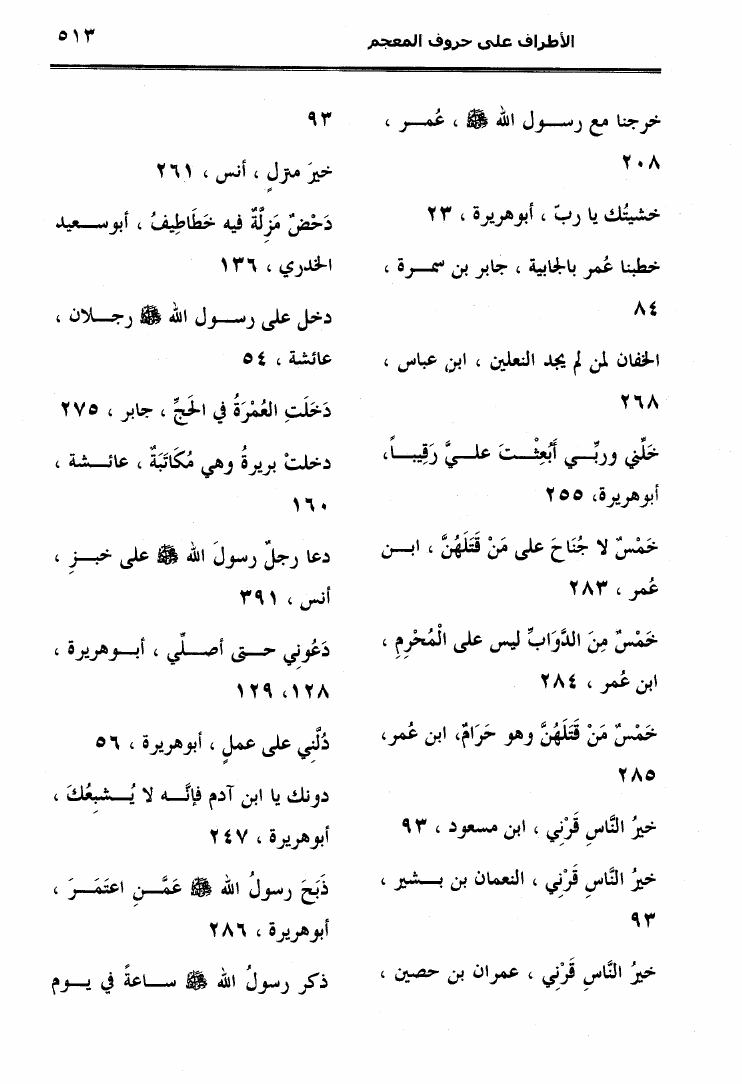 الأطراف على حروف المعجم ٥١٣
خرجنا مع رســول الله ﷺ ، عُمــر ،
٢٠٨
خشيتُك يا ربّ ، أبوهريرة ، ٢٣
خطبنا عُمر بالجابية ، جابر بن سمـرة ،
٨٤
الخفان لمن لم يجد النعلين ، ابن عباس ،
٢٦٨
خَلِّني وربِّــي أَبُعِثْــتَ علــيَّ رَقِيبــاً،
أبوهريرة، ٢٥٥
خَمْسٌ لا جُنَاحَ على مَنْ قَتَلَهُنَّ ، ابــن
عُمر ، ٢٨٣
خَمْسٌ مِنَ الدَّوَابِّ ليس على الْمُحْرِمِ ،
ابن عُمر ، ٢٨٤
خَمْسٌ مَنْ قَتَلَهُنَّ وهو حَرَامٌ، ابن عُمر،
٢٨٥
خيرُ النَّاسِ قَرْنِي ، ابن مسعود ، ٩٣
خيرُ النَّاسِ قَرْنِي ، النعمان بن بــشير ،
٩٣
خيرُ النَّاسِ قَرْنِي ، عمران بن حصين ،
٩٣
خيرَ منزلٍ ، أنس ، ٢٦١
دَحْضٌ مَزِلَّةٌ فيه خَطَاطِيفُ ، أبوســعيد
الخدري ، ١٣٦
دخل على رســول الله ﷺ رجــلان ،
عائشة ، ٥٤
دَخَلَتِ العُمْرَةُ في الحَجِّ ، جابر ، ٢٧٥
دخلتْ بريرةُ وهي مُكَاتَبَةٌ ، عائــشة ،
١٦٠
دعا رجلٌ رسولَ الله ﷺ على خبــزِ ،
أنس ، ٣٩١
دَعُوني حــتى أصــلِّي ، أبــوهريرة ،
١٢٨، ١٢٩
دُلَّنِي على عملٍ ، أبوهريرة ، ٥٦
دونك يا ابن آدم فإنَّــه لا يُــشبِعُكَ ،
أبوهريرة ، ٢٤٧
ذَبَحَ رسولُ الله ﷺ عَمَّــنِ اعتَمَــرَ ،
أبوهريرة ، ٢٨٦
ذكر رسولُ الله ﷺ ســاعةً في يــوم